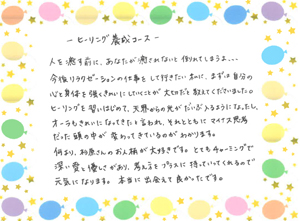 －ヒーリング養成コース－
人を癒す前に、あなたが癒されないと倒れてしまうよ…
今後リラクゼーションの仕事をして行きたい私に、まずは自分の
心と身体を強くきれいにしていくことが大切だと教えてくださいました。
ヒーリングを習いはじめて、天界からの光がだいぶ入るようになったし、
オーラもきれいになってきたと言われ、それとともにマイナス思考
だった頭の中が変わってきているのがわかります。
何より、和原さんのお人柄が大好きです。とてもチャーミングで
深い愛と優しさがあり、考え方をプラスに持っていってくれるので
元気になります。本当に出会えて良かったです。